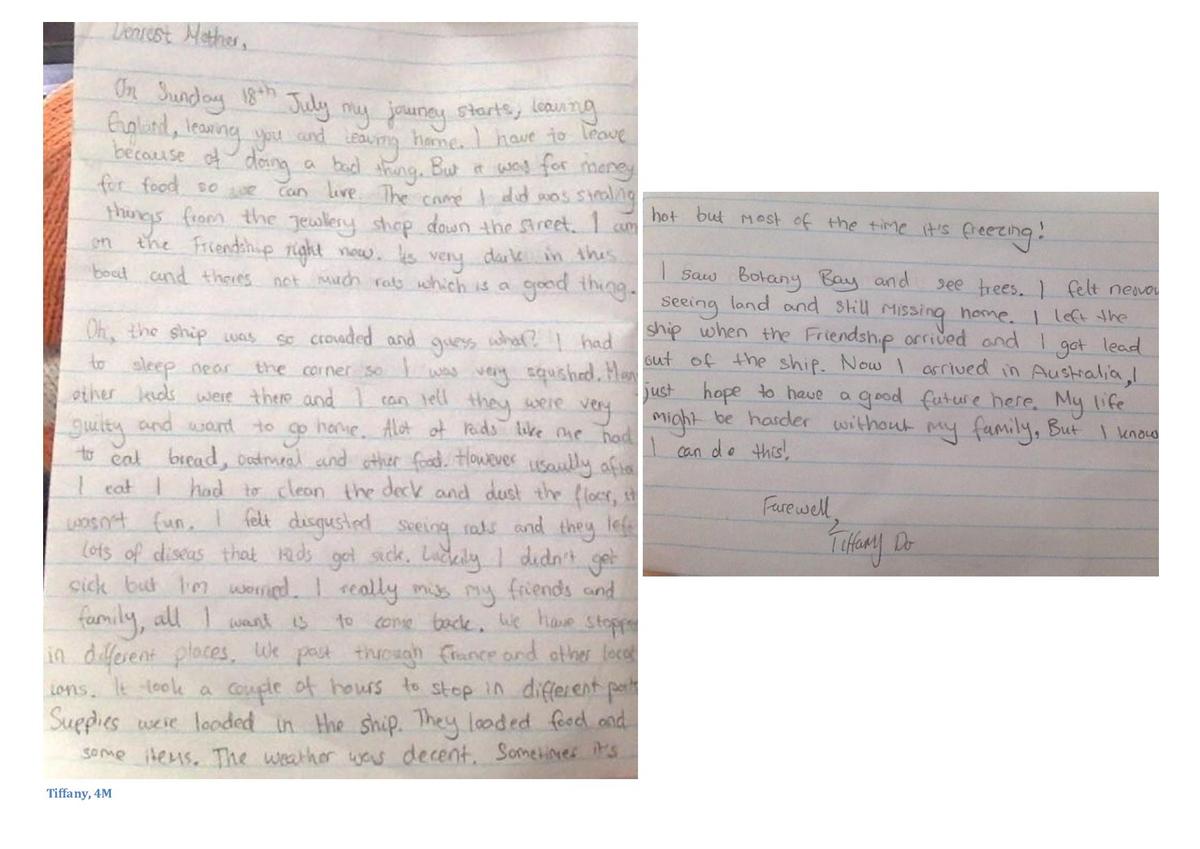 Dearest Mother,
On Sunday 18th July my journey starts, leaving
England, leaving you and leaving home. I have to leave
because of doing a bad thing. But it was for money
for food so we can live. The crime I did was stealing
things from the jewllery shop down the street. I am
on the Friendship right now. It's very dark in this
boat and theres not much rats which is a good thing.
Oh, the ship was so crowded and guess what? I had
to sleep near the corner so I was very squished. Man
other kids were there and I can tell they were very
guilty and want to go home. Alot of kids like me had
to eat bread, oatmeal and other food. However usaully afte
I eat I had to clean the deck and dust the floor, it
wasn't fun. I felt disgusted seeing rats and they left
lots of diseas that kids got sick. Luckily I didn't get
sick but I'm worried. I really miss my friends and
family, all I want is to come back. We have stoppe
in different places. We past through France and other locat
ions. It took a couple of hours to stop in different ports
Supplies were loaded in the ship. They loaded food and
some items. The weather was decent. Sometimes it's
hot but most of the time it's freezing!
I saw Botany Bay and see trees. I felt nervou
seeing land and still missing home. I left the
ship when the Friendship arrived and I got lead
out of the ship. Now I arrived in Australia, I
just hope to have a good future here. My life
might be harder without my family. But I know
I can do this!
Farewell,
Tiffany Do
Tiffany, 4M